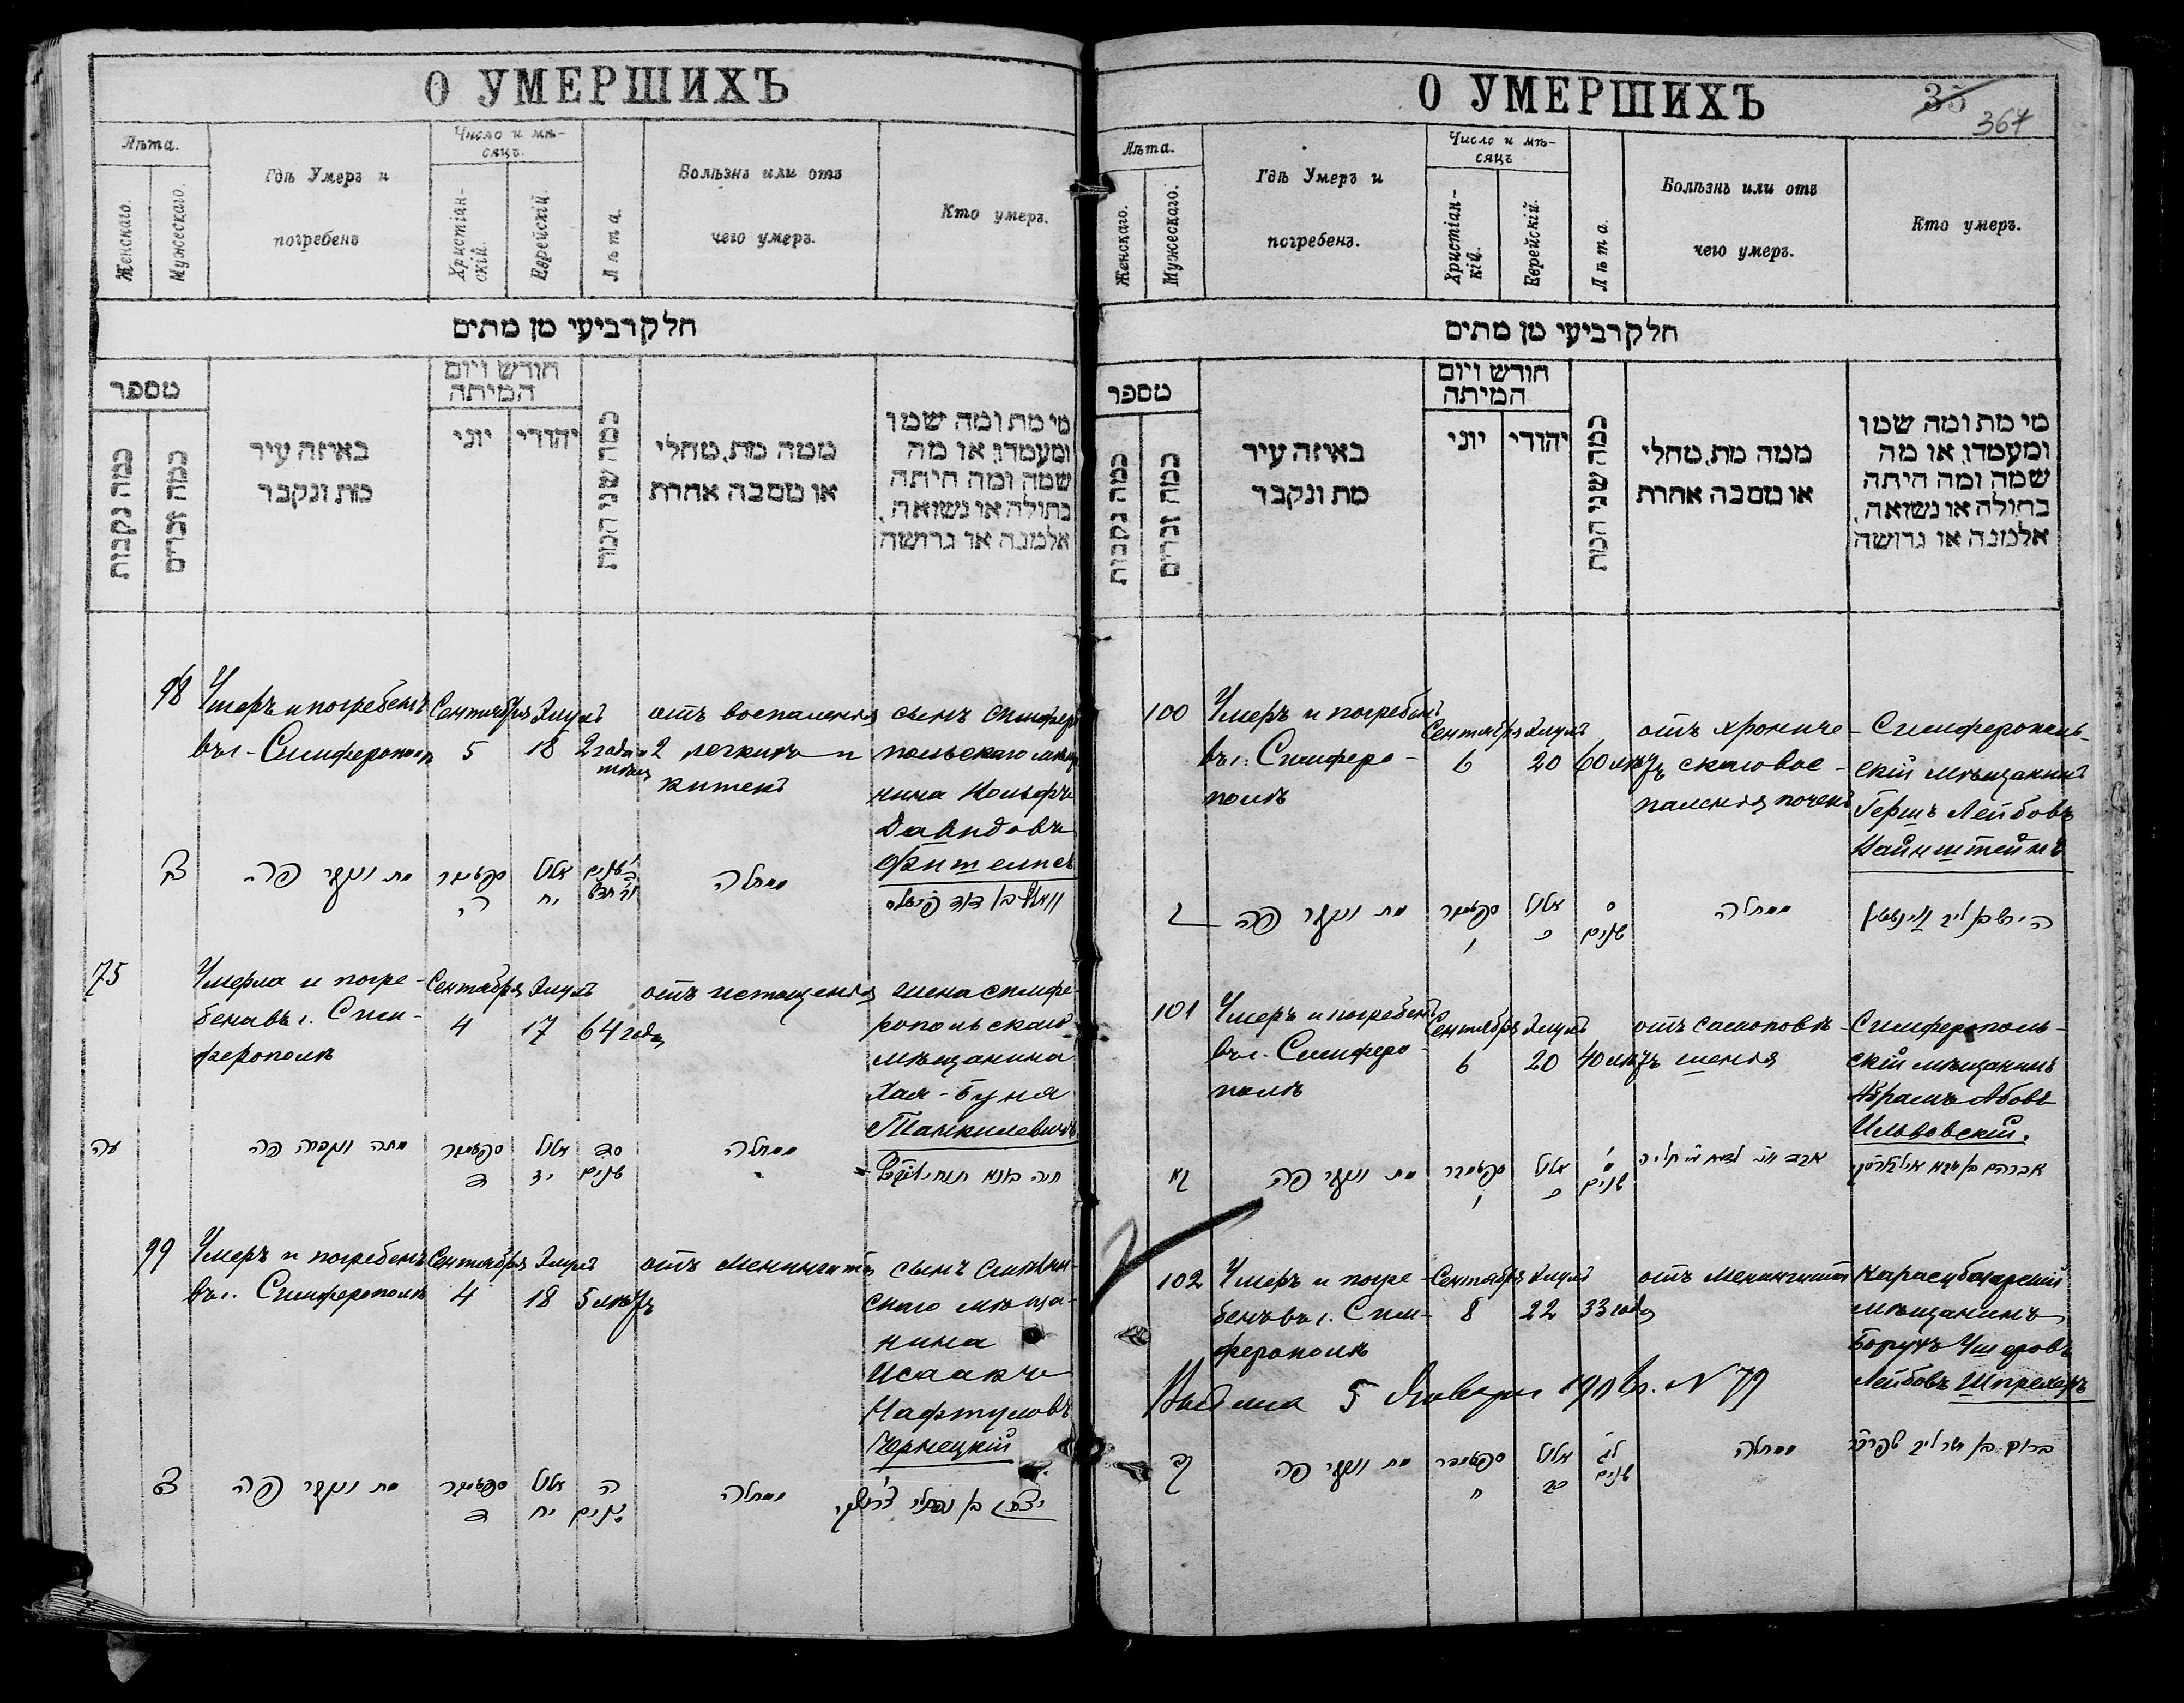 О УМЕРШИХЪ
Лѣта.
Женскаго.
Мужескаго.
Гдѣ Умеръ и
погребенъ
Число и мѣ-
сяцъ.
Христіан-
скій.
Еврейскій.
Лѣта.
Болѣзнь или отъ
чего умеръ.
Кто умеръ.
חלק רביעי מן מתים
מספר
כמה נקבות
כמה זכרים
באיזה עיר
מת ונקבר
חודש ויום
המיתה
יוני
יהודי
כמה שני המת
ממה מת, מחלי
או מסבה אחרת
מי מת ומה שמו
ומעמדו, או מה
שמה ומה היתה
בתולה או נשואה,
אלמנה או גרושה
98
Умеръ и погребенъ
въ г. Симферополѣ
Сентября
5
Элулъ
18
2 года и 2
отъ воспаленія
легкихъ и
сынъ Симферо
польскаго мѣща
нина Вольфъ
Давидовъ
מת ונקבר פה
ספטמבר
ה׳
אלול
יח
מחלה
75
Умерла и погре-
бена въ г. Сим-
ферополѣ
Сентября
4
Элулъ
17
64 года
отъ истощенія
жена симфе-
ропольскаго
мѣщанина
Хая-Буня
Танкилевичъ.
עה
מתה ונקברה פה
ספטמבר
ד
אלול
יז
סד
שנים
מחלה
99
Умеръ и погребенъ
въ г. Симферополѣ
Сентября
4
Элулъ
18
5 лѣтъ
отъ менингита
сынъ
скаго мѣща-
нина
Исаакъ
Нафтуловъ
Чернецкій
מת ונקבר פה
ספטמבר
ד
אלול
יח
ה
שנים
מחלה
יצחק בן נפתלי
О УМЕРШИХЪ
35
367
Лѣта.
Женскаго.
Мужескаго.
Гдѣ Умеръ и
погребенъ.
Число и мѣ-
сяцъ
Христіан-
кій.
Еврейскій.
Лѣта.
Болѣзнь или отъ
чего умеръ.
Кто умеръ.
חלק רביעי מן מתים
מספר
כמה נקבות
כמה זכרים
באיזה עיר
מת ונקבר
חודש ויום
המיתה
יוני
יהודי
כמה שני המת
ממה מת, מחלי
או מסבה אחרת
מי מת ומה שמו
ומעמדו, או מה
שמה ומה היתה
בתולה או נשואה,
אלמנה או גרושה
100
Умеръ и погребенъ
въ г. Симферо-
полѣ
Сентября
6
Элулъ
20
60 лѣтъ
отъ хрониче-
скаго вос-
паленія почекъ
Симферополь-
скій мѣщанинъ
Гершъ Лейбовъ
Вайнштейнъ
ק
מת ונקבר פה
ספטמבר
ו
אלול
כ
ס
שנים
מחלה
הירש בן ליב וויינשטיין
101
Умеръ и погребенъ
въ г. Симферо-
полѣ
Сентября
6
Элулъ
20
40 лѣтъ
отъ самоповѣ-
шенія
Симферополь-
скій мѣщанинъ
Абрамъ Абовъ
Ильвовскій.
קא
מת ונקבר פה
ספטמבר
ו
אלול
כ
מ
שנים
102
Умеръ и погре-
бенъ въ г. Сим-
ферополѣ
Сентября
8
Элулъ
22
33 года
отъ менингита
Карасубазарскій
мѣщанинъ
Борухъ Ушеровъ
Лейбовъ Шпрехеръ
5 Января N 79
קב
מת ונקבר פה
ספטמבר
ח
אלול
כב
לג
שנים
מחלה